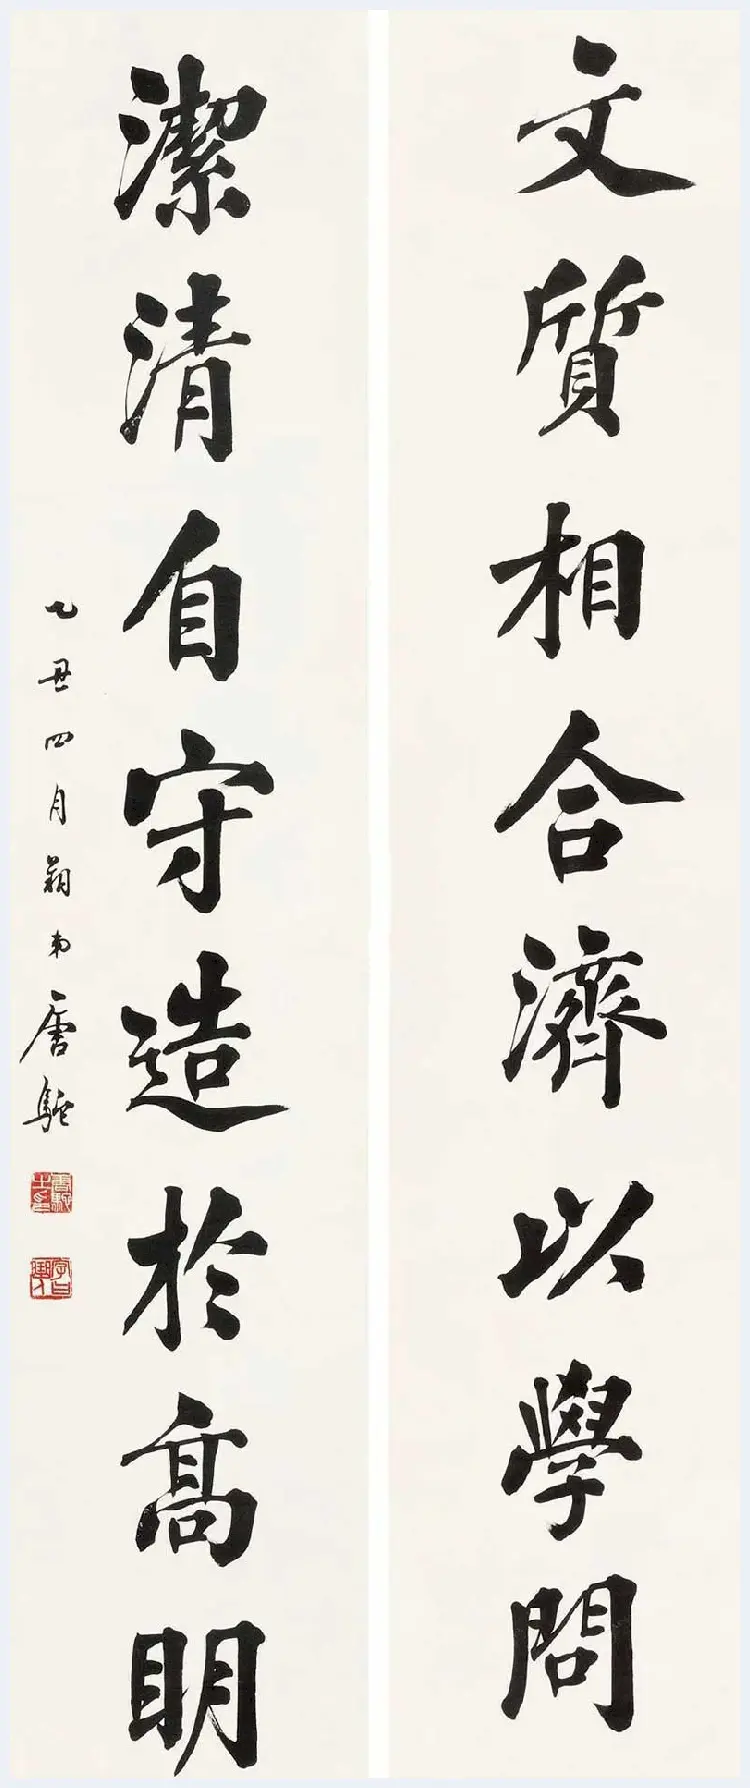 文質相合濟以學問
潔清自守造於高明
乙丑四月蘜弟唐駝